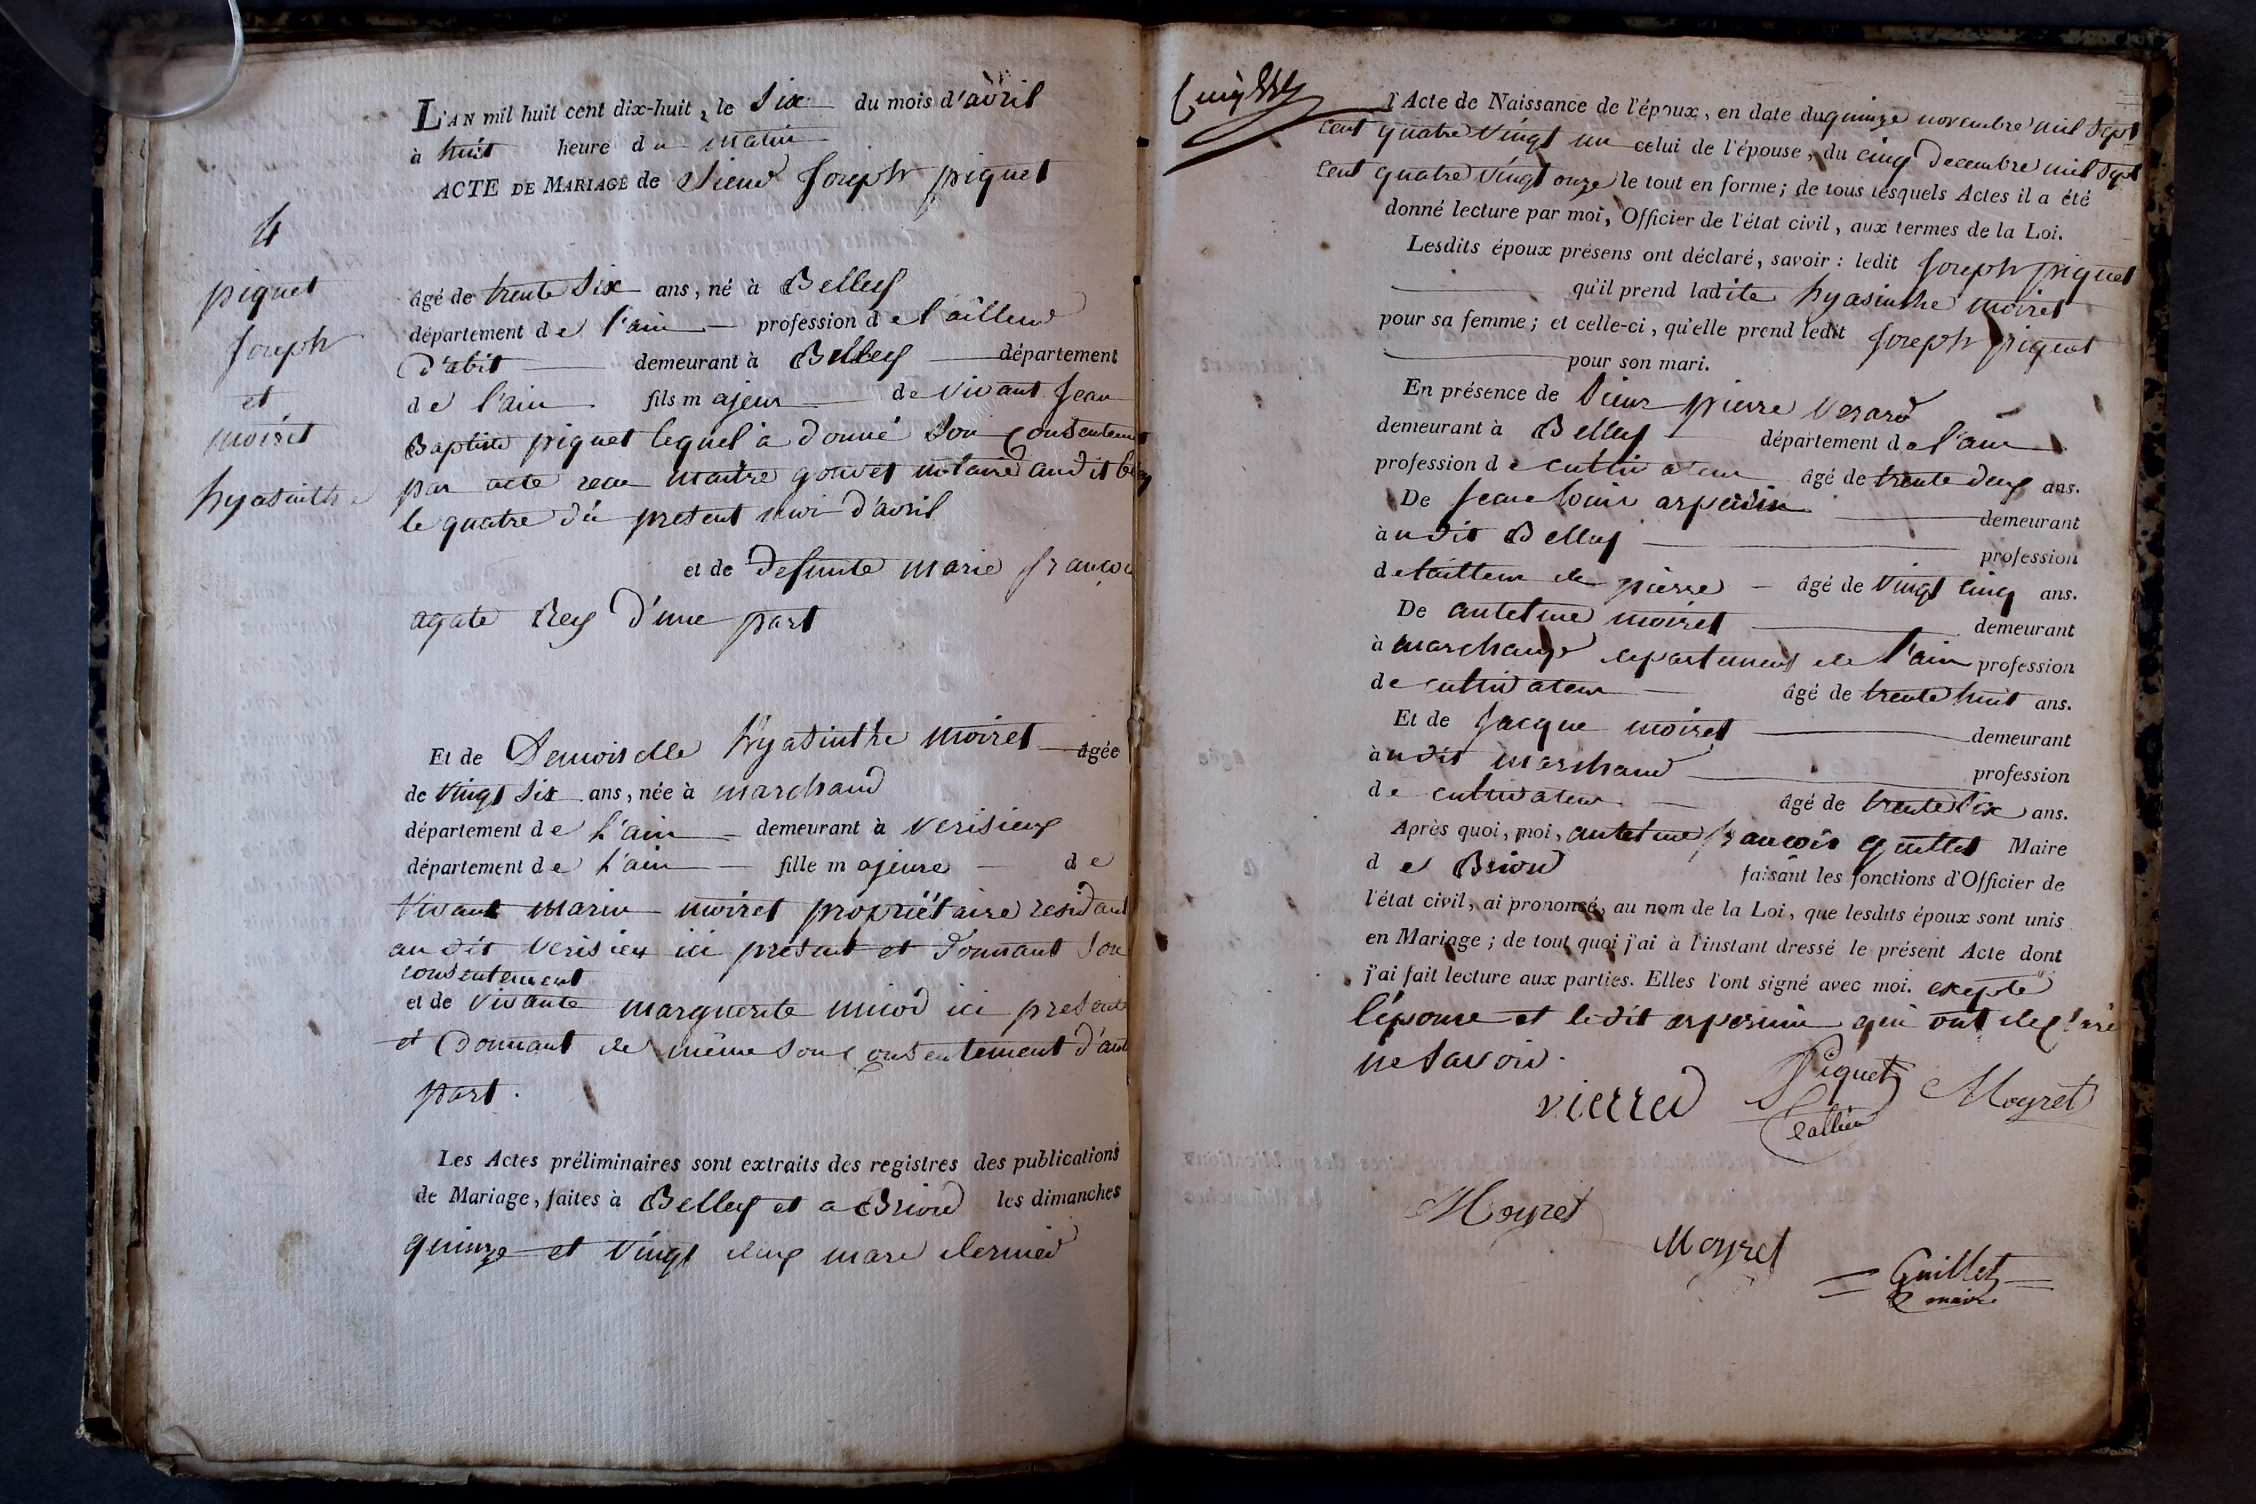 L'AN mil huit cent dix-huit, le Six du mois d'avril
à huit heure du matin
ACTE DE MARIAGE de Sieur Joseph piquet
4
piquet
Joseph
et
moiret
hyasinthe
âgé de trente Six ans, né à Belley
département de l'ain profession de tailleur
d'abit demeurant à Belley département
de l'ain fils majeur de vivant Jean
Baptiste piquet lequel à donné Son Consentement
par acte recu maitre gouvet notaire audit
le quatre du present moi d'avril
et de defunte marie françoi
agate Rey d'une part
Et de Demoiselle hyasinthe moiret agée
de vingt Six ans, née à marchand
département de L'ain demeurant à verisieux
département de L'ain fille majeure de
vivant marin moiret propriétaire residant
au dit verisieu ici present et donnant Son
consentement
et de vivante marguerite micod ici presente
et donnant de même Son Consentement d'aut
part.
Les Actes préliminaires sont extraits des registres des publications
de Mariage, faites à Belley et a Briord les dimanches
quinze et vingt deux mars dernier
l'Acte de Naissance de l'époux, en date du quinze novembre mil Sept
cent quatre vingt un celui de l'épouse, du cinq Decembre mil Sept
cent quatre vingt onze le tout en forme; de tous lesquels Actes il a été
donné lecture par moi, Officier de l'état civil, aux termes de la Loi.
Lesdits époux présens ont déclaré, savoir: ledit Joseph piquet
qu'il prend ladite hyasinthe moiret
pour sa femme; et celle-ci, qu'elle prend ledit Joseph piquet
pour son mari.
En présence de Sieur pierre verard
demeurant à Belley département de l'ain
profession de cultivateur âgé de trente deux ans.
De Jean louis arperin demeurant
à udit Belley profession
de tailleur de pierre âgé de vingt cinq ans.
De antelme moiret demeurant
à marchand departement de l'ain profession
de cultivateur âgé de trente huit ans.
Et de Jacque moiret demeurant
à udit marchand profession
de cultivateur âgé de trente Six ans.
Après quoi, moi, antelme françois guillet Maire
de Briord faisant les fonctions d'Officier de
l'état civil, ai prononcé, au nom de la Loi, que lesdits époux sont unis
en Mariage; de tout quoi j'ai à l'instant dressé le présent Acte dont
j'ai fait lecture aux parties. Elles l'ont signé avec moi. excepté
l'épouse et ledit arperin qui ont declaré
ne Savoir.
vierred Piquet Moyret
Moyret
Moyret
Guillet
maire